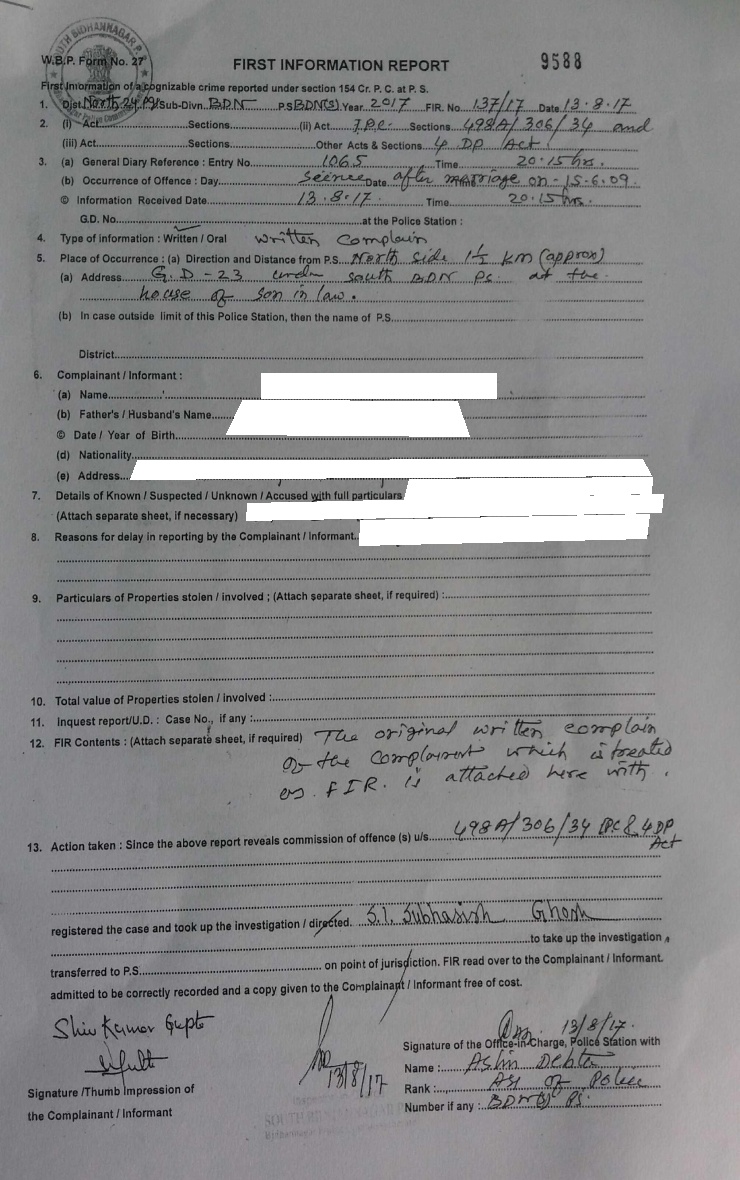 SOUTH BIDHANNAGAR P.S.
W.B.P. Form No. 27
FIRST INFORMATION REPORT 9588
First Information of a cognizable crime reported under section 154 Cr. P. C. at P. S.
1. Dist. North 24 Sub-Divn. BDN P.S. BDN(S) Year 2017 FIR. No. 137/17 Date 13.8.17
2. (i) Act............Sections............(ii) Act I.P.C. Sections 498A/306/34 and
(iii) Act............Sections............Other Acts & Sections 4 DP Act
3. (a) General Diary Reference : Entry No. 1065 Time 20.15 hrs.
(b) Occurrence of Offence : Day............Date after marriage on - 15-6-09.
© Information Received Date 13.8.17. Time 20.15 hrs.
G.D. No............at the Police Station :
4. Type of information : Written / Oral written complain
5. Place of Occurrence : (a) Direction and Distance from P.S. North side 1½ km (approx)
(a) Address G.D - 23 under South BDN PS. at the
house of son in law.
(b) In case outside limit of this Police Station, then the name of P.S............
District............
6. Complainant / Informant :
(a) Name............
(b) Father's / Husband's Name............
© Date / Year of Birth............
(d) Nationality............
(e) Address...
7. Details of Known / Suspected / Unknown / Accused with full particulars
(Attach separate sheet, if necessary)
8. Reasons for delay in reporting by the Complainant / Informant.
9. Particulars of Properties stolen / involved ; (Attach separate sheet, if required) :............
10. Total value of Properties stolen / involved :............
11. Inquest report/U.D. : Case No., if any :............
12. FIR Contents : (Attach separate sheet, if required) The original written complain
of the complainant which is treated
as FIR. is attached here with.
13. Action taken : Since the above report reveals commission of offence (s) u/s. 498A/306/34 IPC & 4 DP
Act
registered the case and took up the investigation / directed. S.I. Subhasish Ghosh
............to take up the investigation,
transferred to P.S............ on point of jurisdiction. FIR read over to the Complainant / Informant.
admitted to be correctly recorded and a copy given to the Complainant / Informant free of cost.
Shiv Kumar Gupta
13/8/17
13/8/17.
Signature of the Office-in-Charge, Police Station with
Name :
Rank : ASI of Police
Number if any : BDN(S) PS.
Signature /Thumb Impression of
the Complainant / Informant